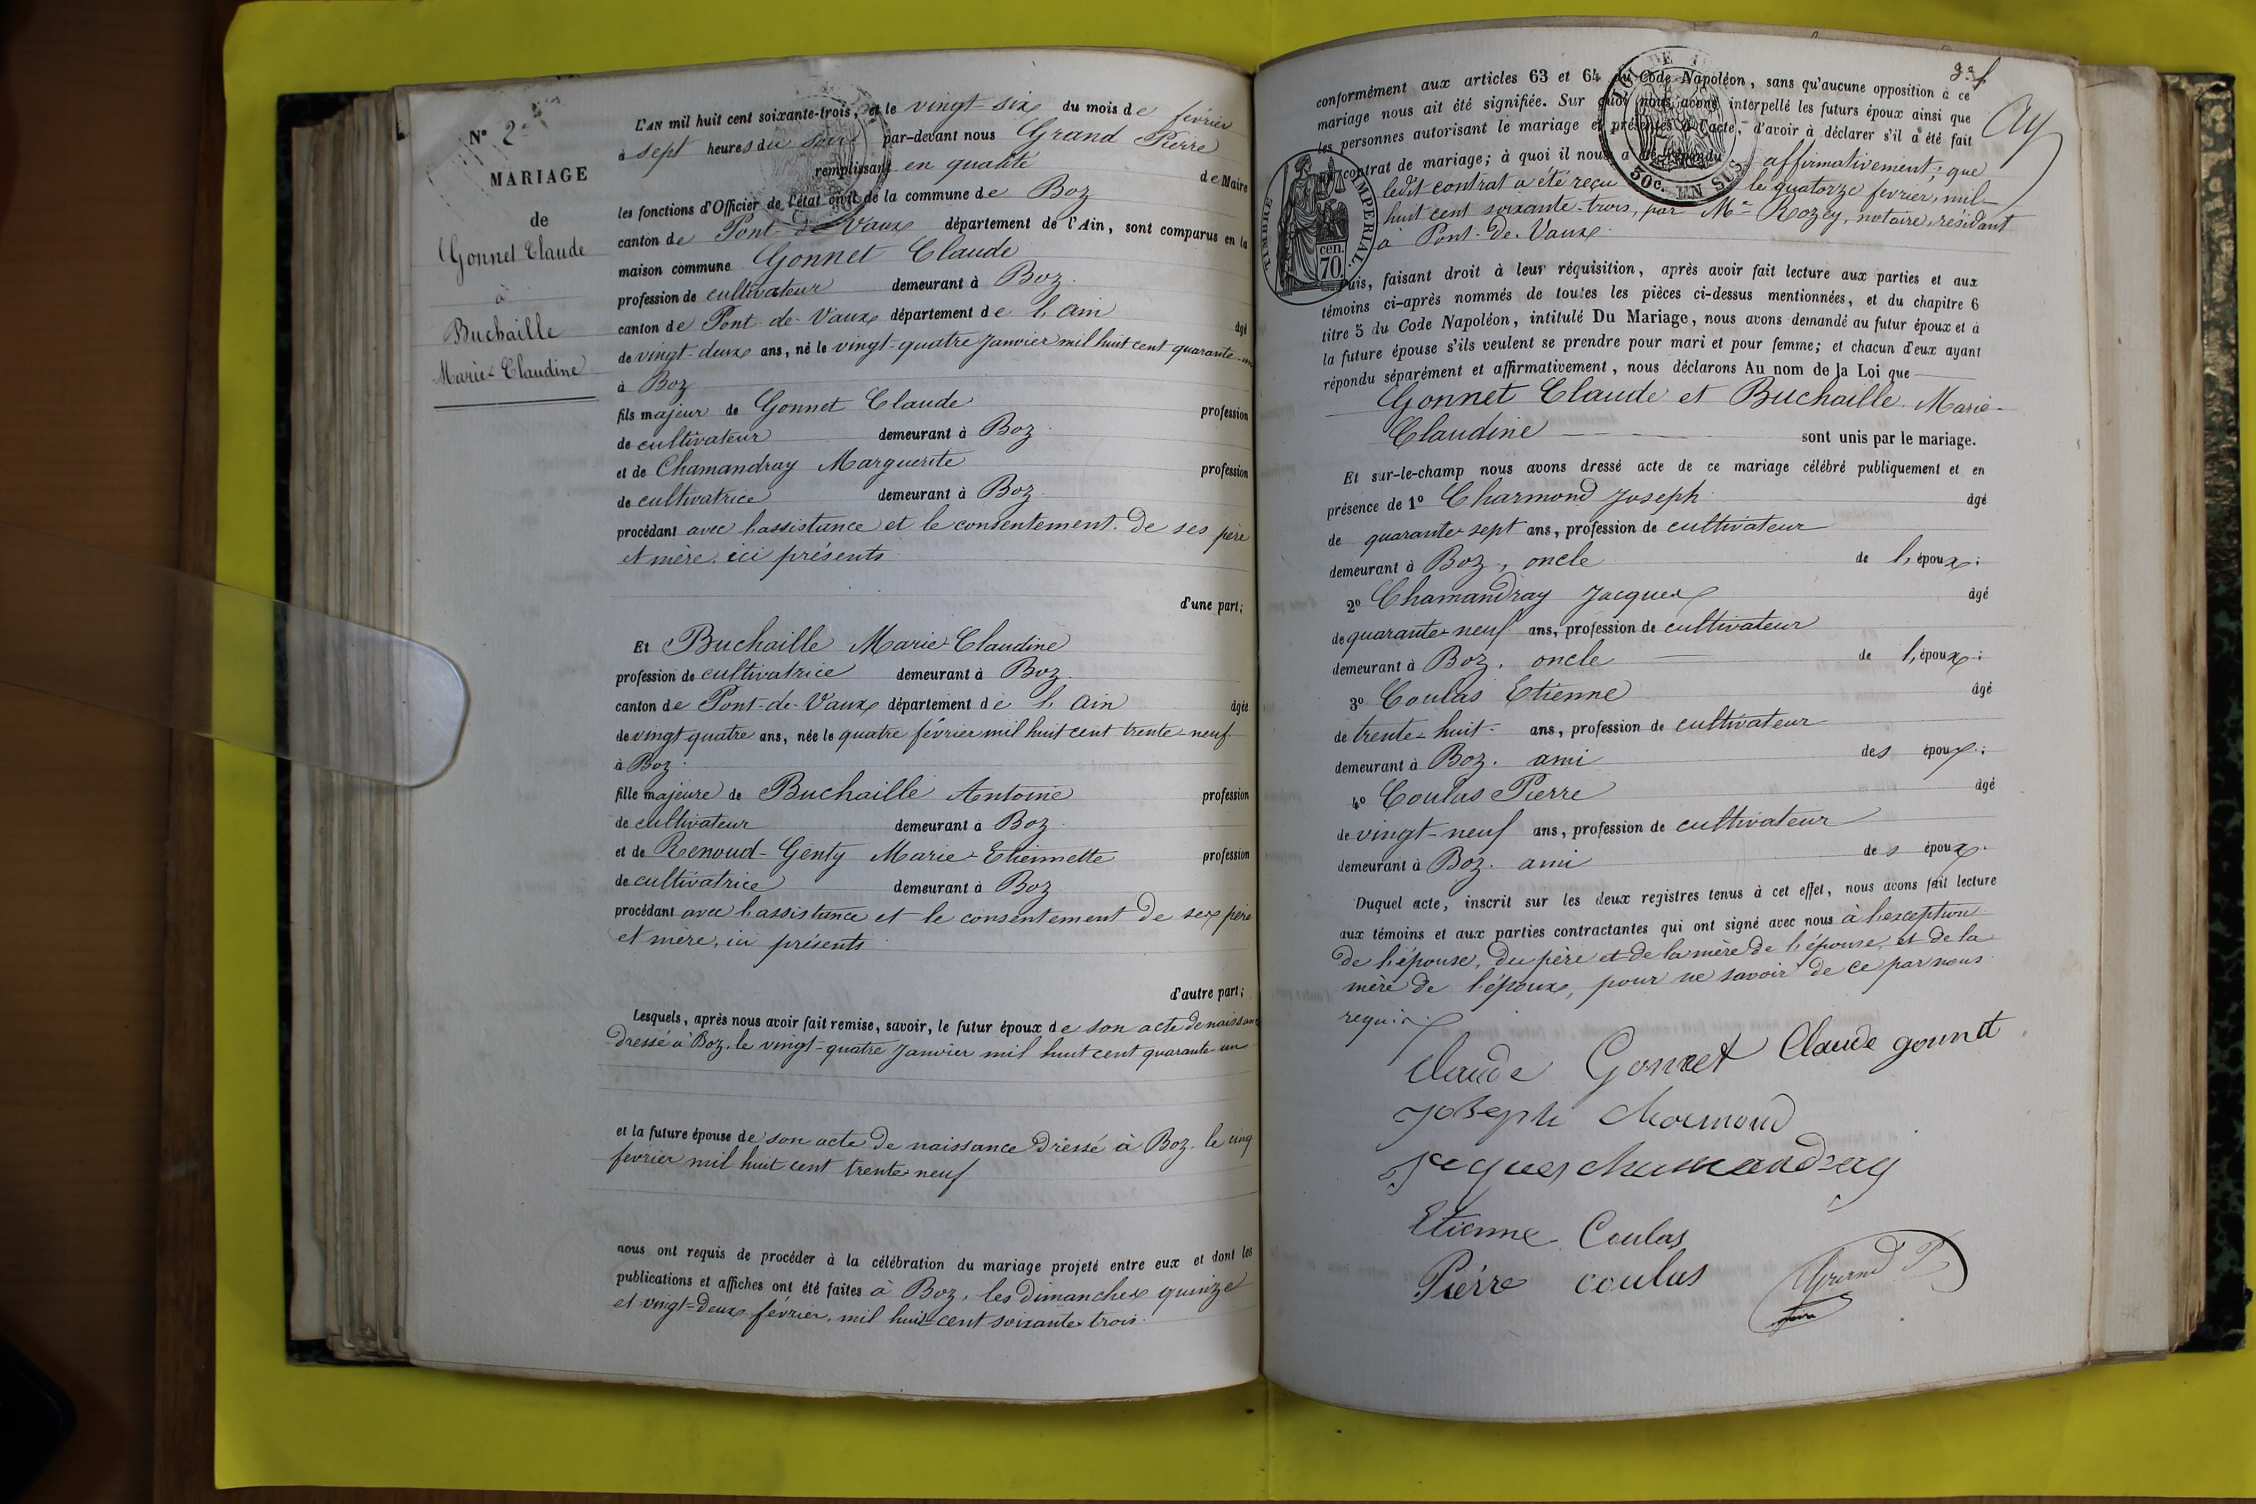 N° 2
MARIAGE
de
Gonnet Claude
à
Buchaille
Marie-Claudine
L'AN mil huit cent soixante-trois, et le vingt-six du mois de février
à sept heures du soir par-devant nous Grand Pierre
remplissant en qualité de Maire
les fonctions d'Officier de l'état civil de la commune de Boz
canton de Pont-de-Vaux département de l'Ain, sont comparus en la
maison commune Gonnet Claude
profession de cultivateur demeurant à Boz.
canton de Pont-de-Vaux département de l'ain âgé
de vingt-deux ans, né le vingt-quatre janvier mil huit cent quarante-un
à Boz
fils majeur de Gonnet Claude profession
de cultivateur demeurant à Boz.
et de Chamandray Marguerite profession
de cultivatrice demeurant à Boz.
procédant avec l'assistance et le consentement de ses père
et mère, ici présents
d'une part;
Et Buchaille Marie-Claudine
profession de cultivatrice demeurant à Boz.
canton de Pont-de-Vaux département de l'ain âgée
de vingt quatre ans, née le quatre février mil huit cent trente-neuf
à Boz.
fille majeure de Buchaille Antoine profession
de cultivateur demeurant à Boz.
et de Renoud-Genty Marie-Etiennette profession
de cultivatrice demeurant à Boz
procédant avec l'assistance et le consentement de ses père
et mère, ici présents
d'autre part;
Lesquels, après nous avoir fait remise, savoir, le futur époux de son acte de naissance
dressé à Boz, le vingt-quatre janvier mil huit cent quarante-un
et la future épouse de son acte de naissance dressé à Boz, le cinq
février mil huit cent trente neuf
nous ont requis de procéder à la célébration du mariage projeté entre eux et dont les
publications et affiches ont été faites à Boz, les dimanches quinze
et vingt-deux février, mil huit cent soixante trois.
conformément aux articles 63 et 64 du Code Napoléon, sans qu'aucune opposition à ce
mariage nous ait été signifiée. Sur quoi nous avons interpellé les futurs époux ainsi que
les personnes autorisant le mariage et présentes à l'acte, d'avoir à déclarer s'il a été fait
un contrat de mariage; à quoi il nous a été répondu affirmativement; que
ledit contrat a été reçu le quatorze février, mil-
huit cent soixante-trois, par Me Rozey, notaire, résidant
à Pont-de-Vaux.
50c. EN SUS
TIMBRE IMPERIAL
70. cen.
Puis, faisant droit à leur réquisition, après avoir fait lecture aux parties et aux
témoins ci-après nommés de toutes les pièces ci-dessus mentionnées, et du chapitre 6
titre 5 du Code Napoléon, intitulé Du Mariage, nous avons demandé au futur époux et à
la future épouse s'ils veulent se prendre pour mari et pour femme; et chacun d'eux ayant
répondu séparément et affirmativement, nous déclarons Au nom de la Loi que
Gonnet Claude et Buchaille Marie-
Claudine sont unis par le mariage.
Et sur-le-champ nous avons dressé acte de ce mariage célébré publiquement et en
présence de 1° Charmond Joseph âgé
de quarante-sept ans, profession de cultivateur
demeurant à Boz, oncle de l'époux;
2° Chamandray Jacques âgé
de quarante-neuf ans, profession de cultivateur
demeurant à Boz, oncle de l'époux;
3° Coulas Etienne âgé
de trente-huit ans, profession de cultivateur
demeurant à Boz. ami des époux;
4° Coulas Pierre âgé
de vingt-neuf ans, profession de cultivateur
demeurant à Boz. ami des époux.
Duquel acte, inscrit sur les deux registres tenus à cet effet, nous avons fait lecture
aux témoins et aux parties contractantes qui ont signé avec nous à l'exception
de l'épouse, du père et de la mère de l'épouse, et de la
mère de l'époux, pour ne savoir de ce par nous
requis.
Claude Gonnet Claude gonnet
Joseph charmond
Jacques chamandray
Etienne Coulas
Pierre coulas
Grand P